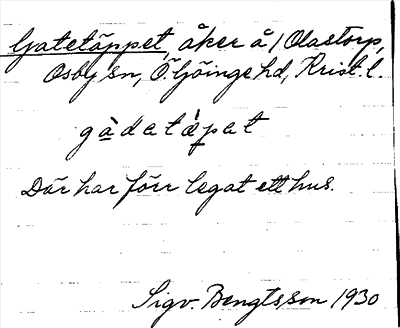 Gatetäppet, åker å 1 Olastorp,
Osby sn, Ö. Göinge hd, Krist. l.
gàdetǽpet
Där har förr legat ett hus.
Sigv. Bengtsson 1930